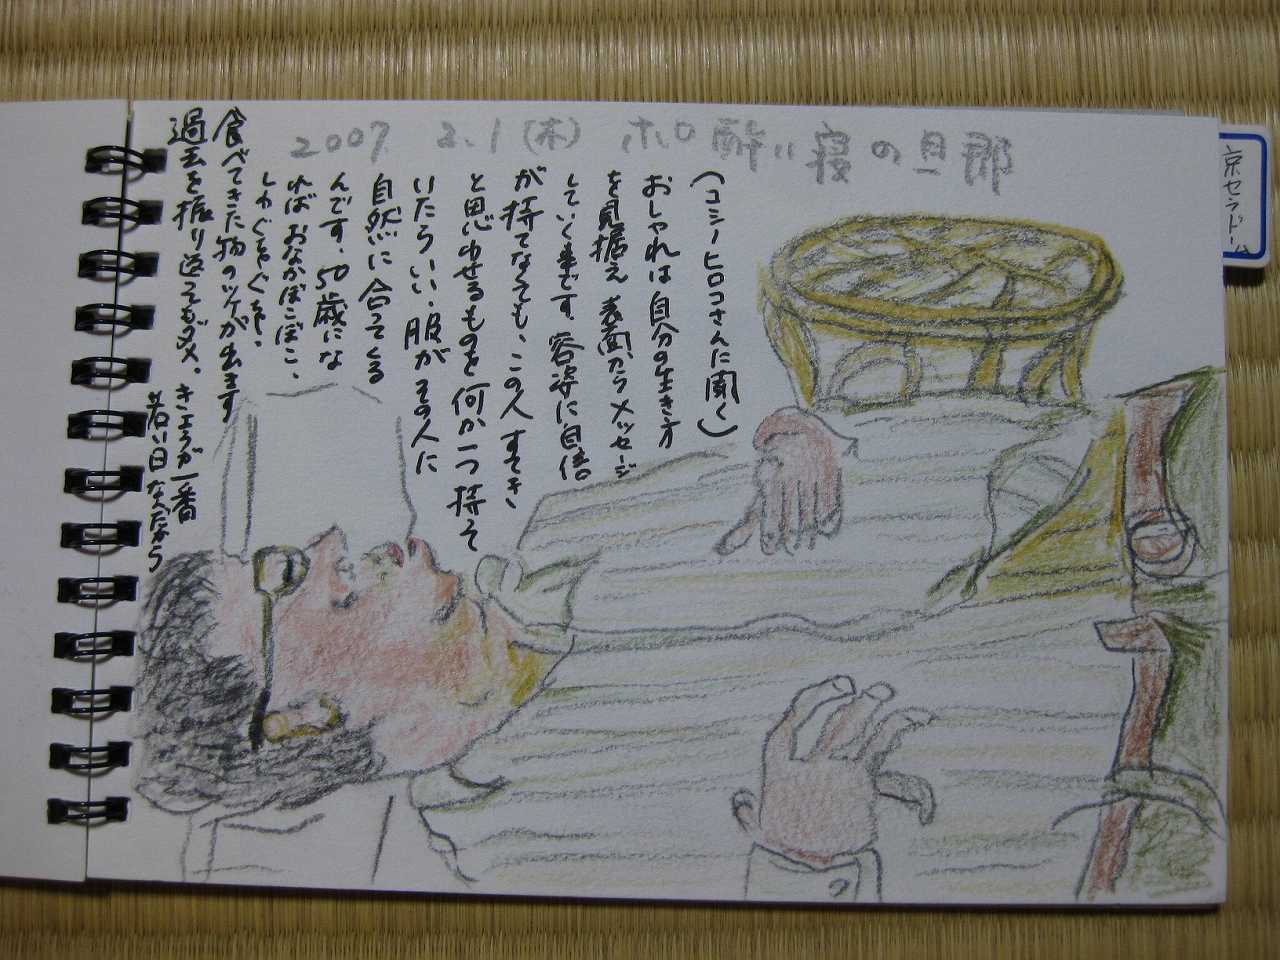 2007. 2.1(木) ホロ酔い寝の旦那
(コシノヒロコさんに聞く)
おしゃれは自分の生き方
を見据え 表面からメッセージ
していく事です。容姿に自信
が持てなくても、この人すてき
と思わせるものを何か一つ持って
いたらいい、服がその人に
自然に合ってくる
んです。50歳にな
ればおなかぽこぽこ、
しわくちゃ
食べてきた物のツケが出ます
過去を振り返ってもダメ。きょうが一番
若い日なんだから
京セラドーム